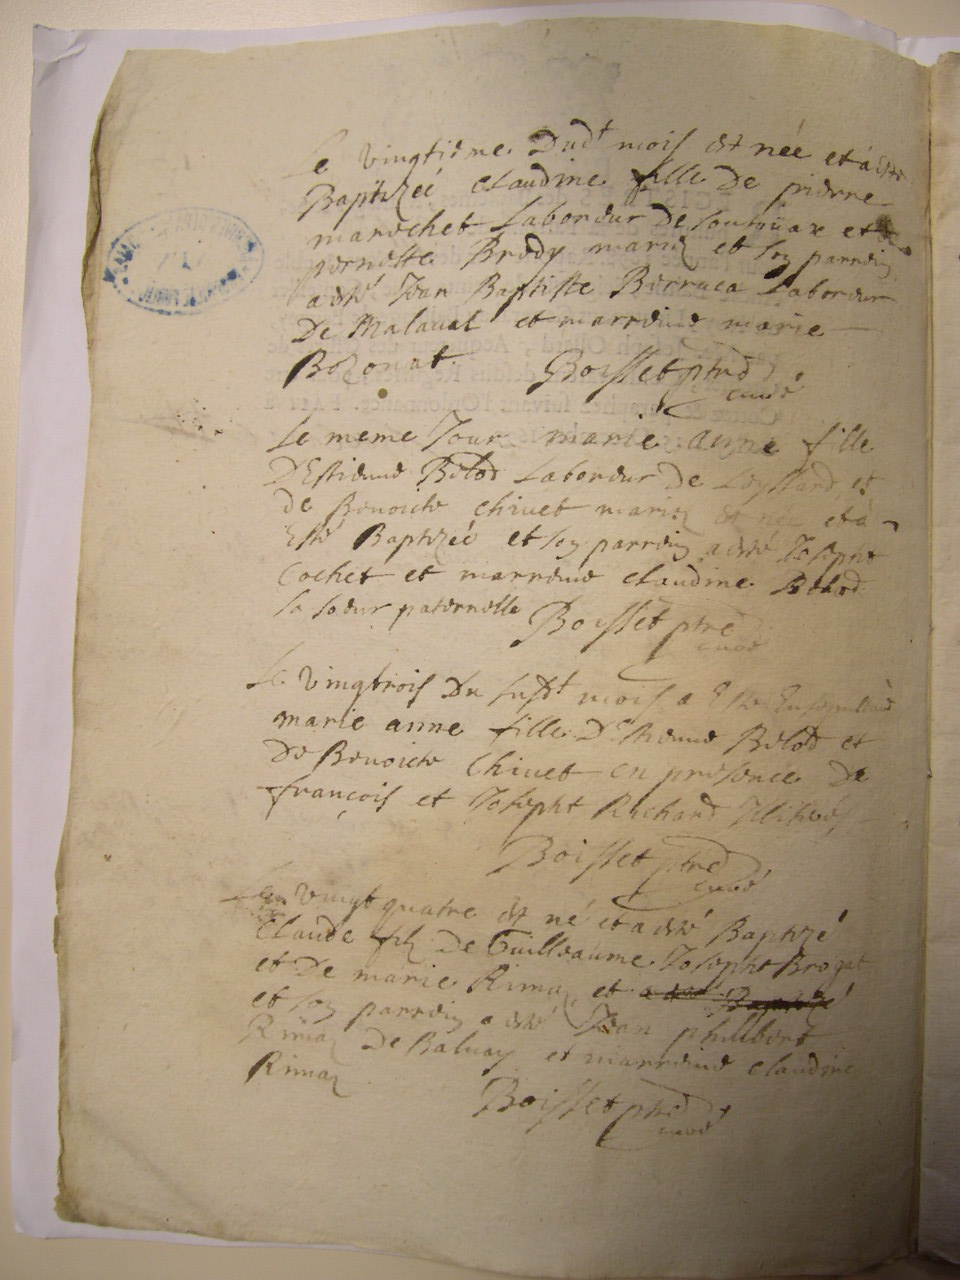 Le vingtieme Dudt mois est née et a esté
Baptizeé Claudine fille De pierre
marechet Laboreur De et
pernette Brody mariez et son parrein
a esté Jean Baptiste Laboreur
De Malaval et marreine marie
Bozonat. Boisset ptre
curé
Le meme Jour marie anne fille
D'Estienne Belod Laboreur De Leyssard et
de Benoiste Chivet mariez est née et a
Esté Baptizeé et son parrein a esté Joseph
Cochet et marreine Claudine Belod
sa soeur paternelle Boisset ptre
curé
Le vingtrois Du susdt mois a Esté Ensepulturé
marie anne fille D'Etienne Belod et
De Benoiste Chivet en presence De
françois et Joseph Richard
Boisset ptre
curé
Le vingt quatre est né et a esté Baptizé
Claude fils De Guilleaume Joseph Brogat
et De marie Rimaz et a esté Baptizé
et son parrein a esté Jean philibert
Rimaz De Balvay et marreine Claudine
Rimaz
Boisset ptre
curé